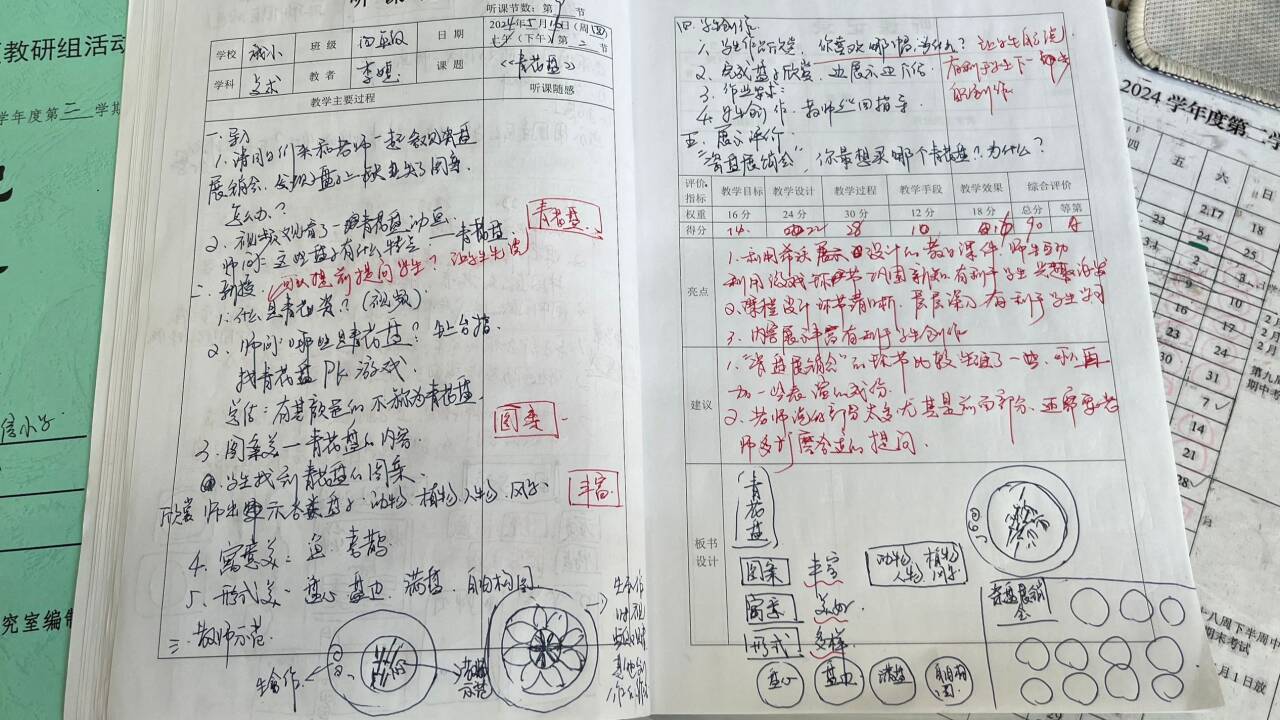 教研组活动
年度第二学期
究室编制
听课节数:第 节
学校 城小 班级 四年级 日期 2024年5月16日(周四)
(下午)第二节
学科 美术 教者 课题 《青花盘》
教学主要过程 听课随感
一、导入
1、请同学们来和老师一起参观瓷盘
展销会,发现盘子上缺失了图案.
怎么办?
2、视频观看了青花盘动画.
师问:这些盘子有什么特点——青花盘.
青花盘
二、新授. 可以提前提问学生?让学生先说
1、什么是青花瓷?(视频)
2、师问:哪些是青花盘?上台指.
找青花盘PK游戏.
总结:有其它颜色的不称为青花盘.
图案
3、图案美—青花盘的内容.
学生找到青花盘的图案.
欣赏 师出示各类盘子:动物、植物、人物、风景.
丰富
4、寓意美:鱼、喜鹊
5、形式美:盘心 盘边、满盘、自由构图
三、教师示范.
生合作
老师示范
四、学生创作.
1、学生作品欣赏,你喜欢哪幅.为什么?让学生能说
3、作业要求:
4、学生创作,教师巡回指导.
五、展示评价.
“瓷盘展销会”,你最想买哪个青花盘?为什么?
评价指标 教学目标 教学设计 教学过程 教学手段 教学效果 综合评价
权重 16分 24分 30分 12分 18分 总分 等第
得分 14 22 28 10 16 90
亮点
1、利用希沃展示设计的教学课件,师生互动
利用游戏环节巩固新知有利于学生
2、课程设计环节清晰,层层深入有利于学生学习
3、内容展示丰富有利于学生创作
建议
1、“瓷盘展销会”的环节比较生硬了一些,可以再
加一些表演的成份.
2、老师说的部分太多,尤其是前面部分,还需要老
师多打磨合适的提问.
板书设计
青花盘
图案 丰富 动物 植物 人物 风景
寓意 美好
形式 多样
盘心 盘边 满盘 自由构图
瓷盘展销会
2024 学年度第二学
四 五 六 日
2.17 18
23 24 25
3.1 2 3
9 10
16 17
23 24
31
7
14
21
28
期中考
八周下半周中
期末考试
月1日放